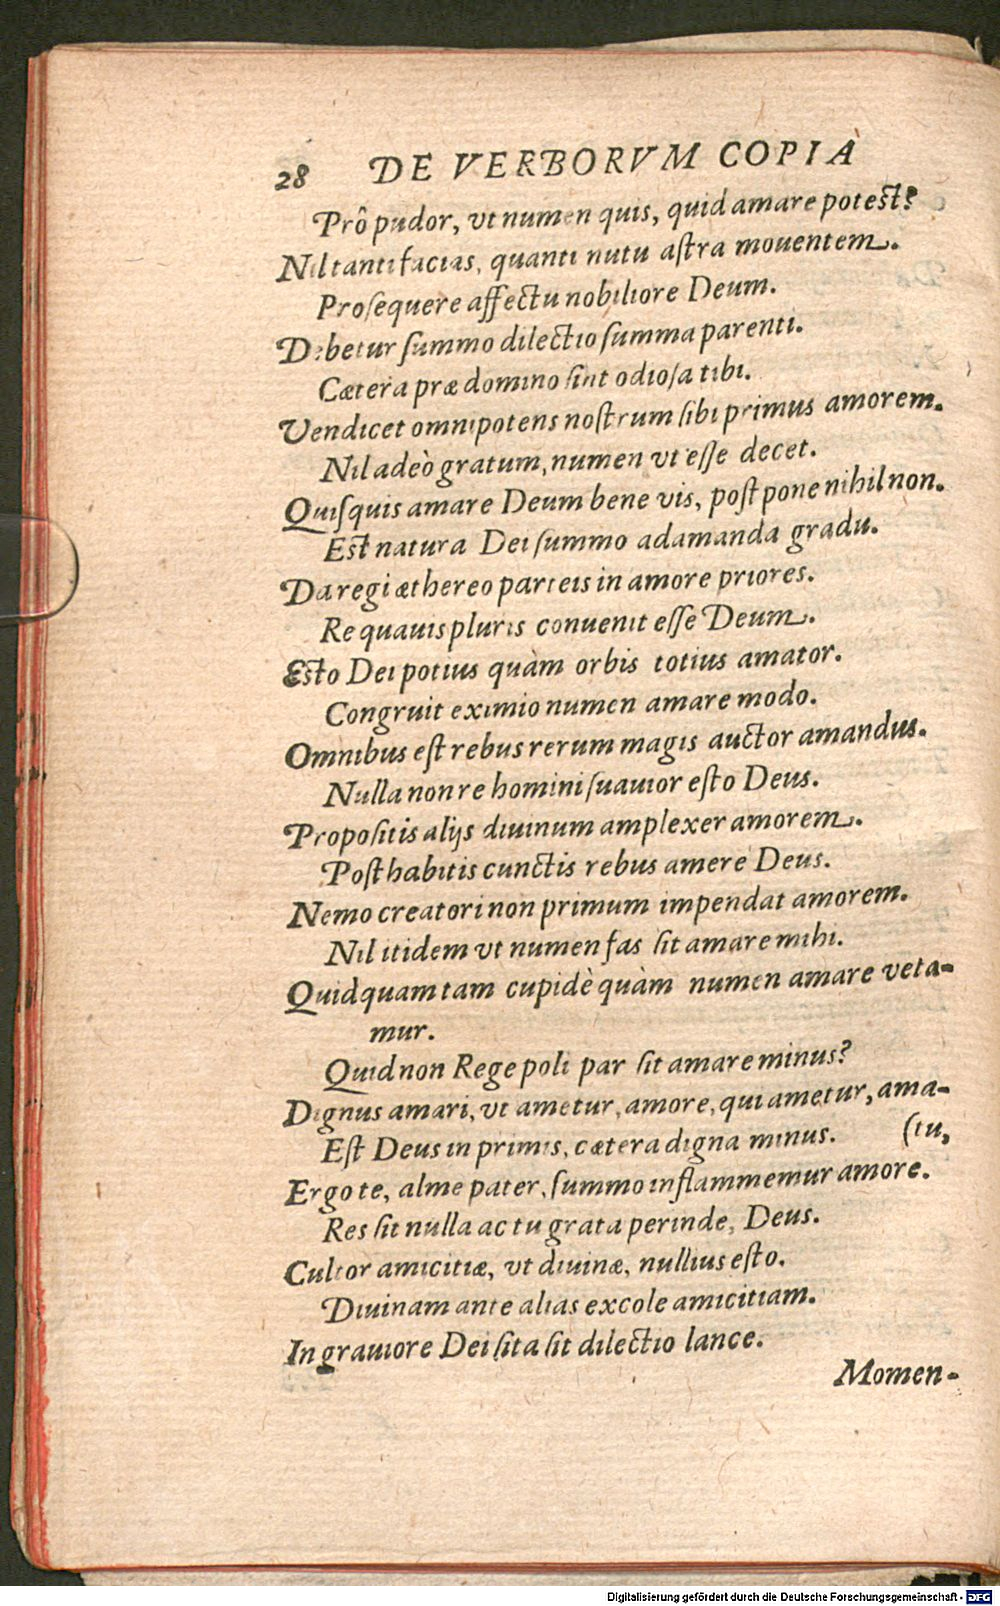 28 DE VERBORVM COPIA
Prô pudor, vt numen quis, quid amare potest?
Nil tanti facias, quanti nutu astra mouentem.
Prosequere affectu nobiliore Deum.
Debetur summo dilectio summa parenti.
Cætera præ domino sint odiosa tibi.
Vendicet omnipotens nostrum sibi primus amorem.
Nil adeò gratum, numen vt esse decet.
Quisquis amare Deum bene vis, postpone nihil non.
Est natura Dei summo adamanda gradu.
Da regi æthereo parteis in amore priores.
Re quauis pluris conuenit esse Deum.
Esto Dei potius quàm orbis totius amator.
Congruit eximio numen amare modo.
Omnibus est rebus rerum magis auctor amandus.
Nulla non re homini suauior esto Deus.
Propositis alijs diuinum amplexer amorem.
Posthabitis cunctis rebus amere Deus.
Nemo creatori non primum impendat amorem.
Nil itidem vt numen fas sit amare mihi.
Quidquam tam cupidè quàm numen amare veta-
mur.
Quid non Rege poli par sit amare minus?
Dignus amari, vt ametur, amore, qui ametur, ama-
Est Deus in primis, cætera digna minus. (tu,
Ergo te, alme pater, summo inflammemur amore.
Res sit nulla ac tu grata perinde, Deus.
Cultor amicitiæ, vt diuinæ, nullius esto.
Diuinam ante alias excole amicitiam.
In grauiore Dei sita sit dilectio lance.
Momen-
Digitalisierung gefördert durch die Deutsche Forschungsgemeinschaft - DFG